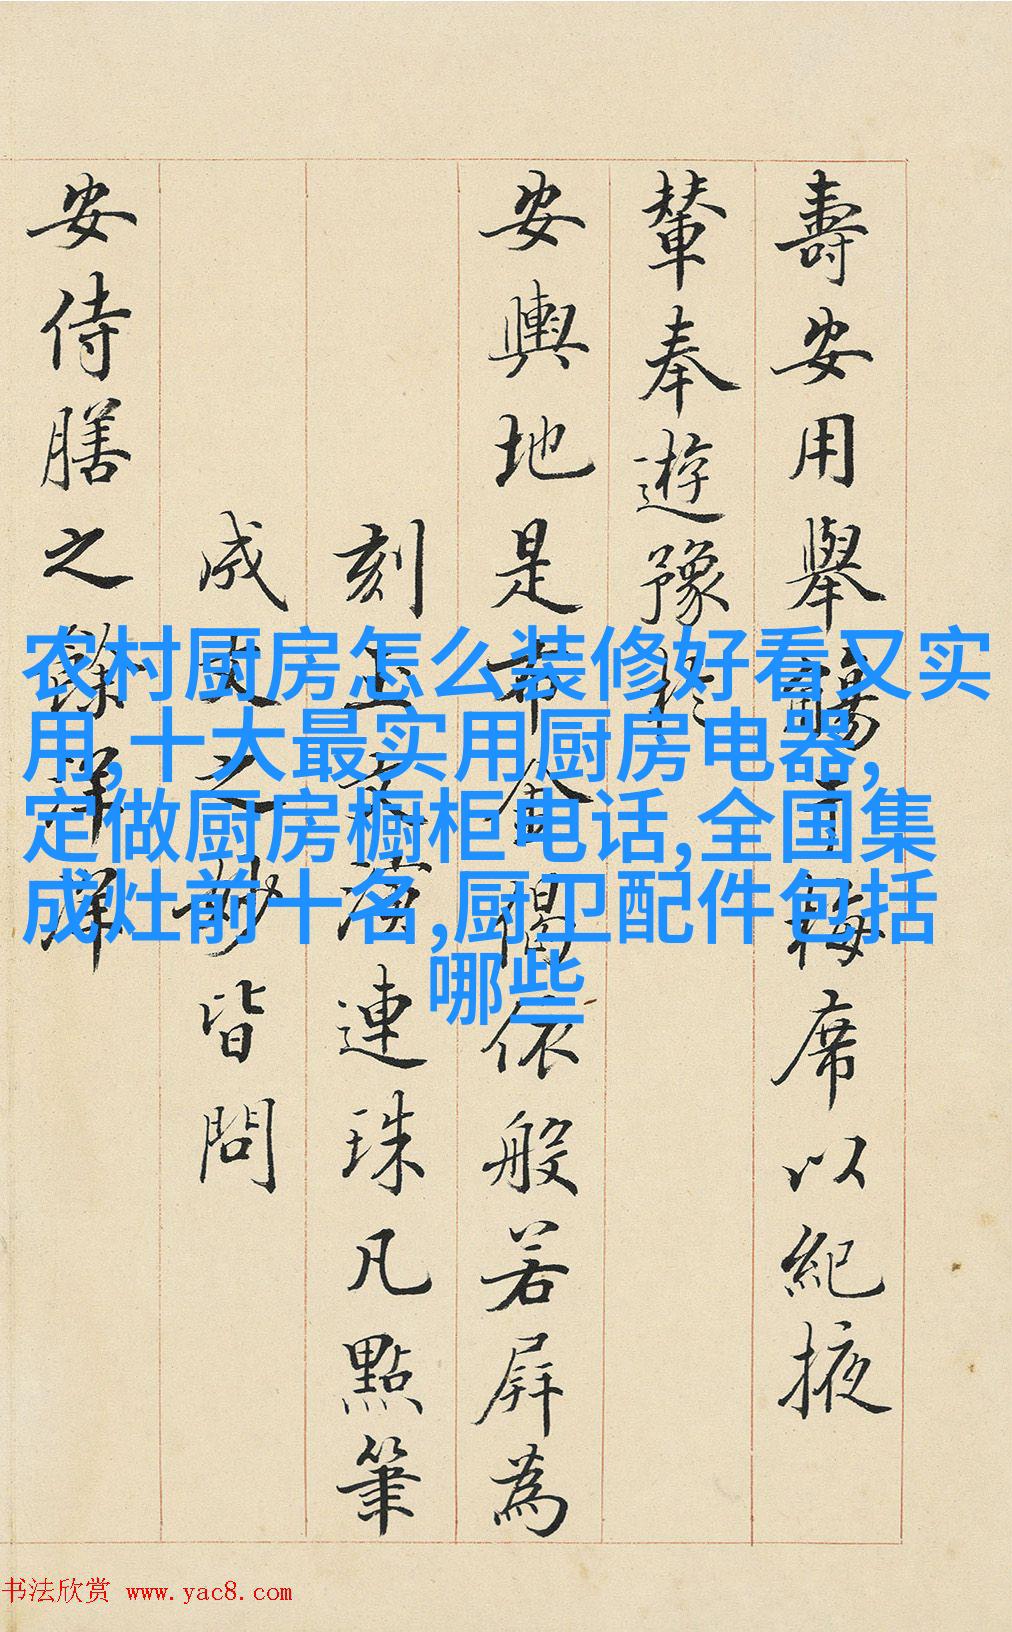 壽安用舉觴梅席以紀掖
輦奉遊豫於
安輿地是布金偈依般若屏為
刻連珠凡點筆
成文之妙皆問
安侍膳之餘
农村厨房怎么装修好看又实
用,十大最实用厨房电器,
定做厨房橱柜电话,全国集
成灶前十名,厨卫配件包括
哪些
书法欣赏 www.yac8.com